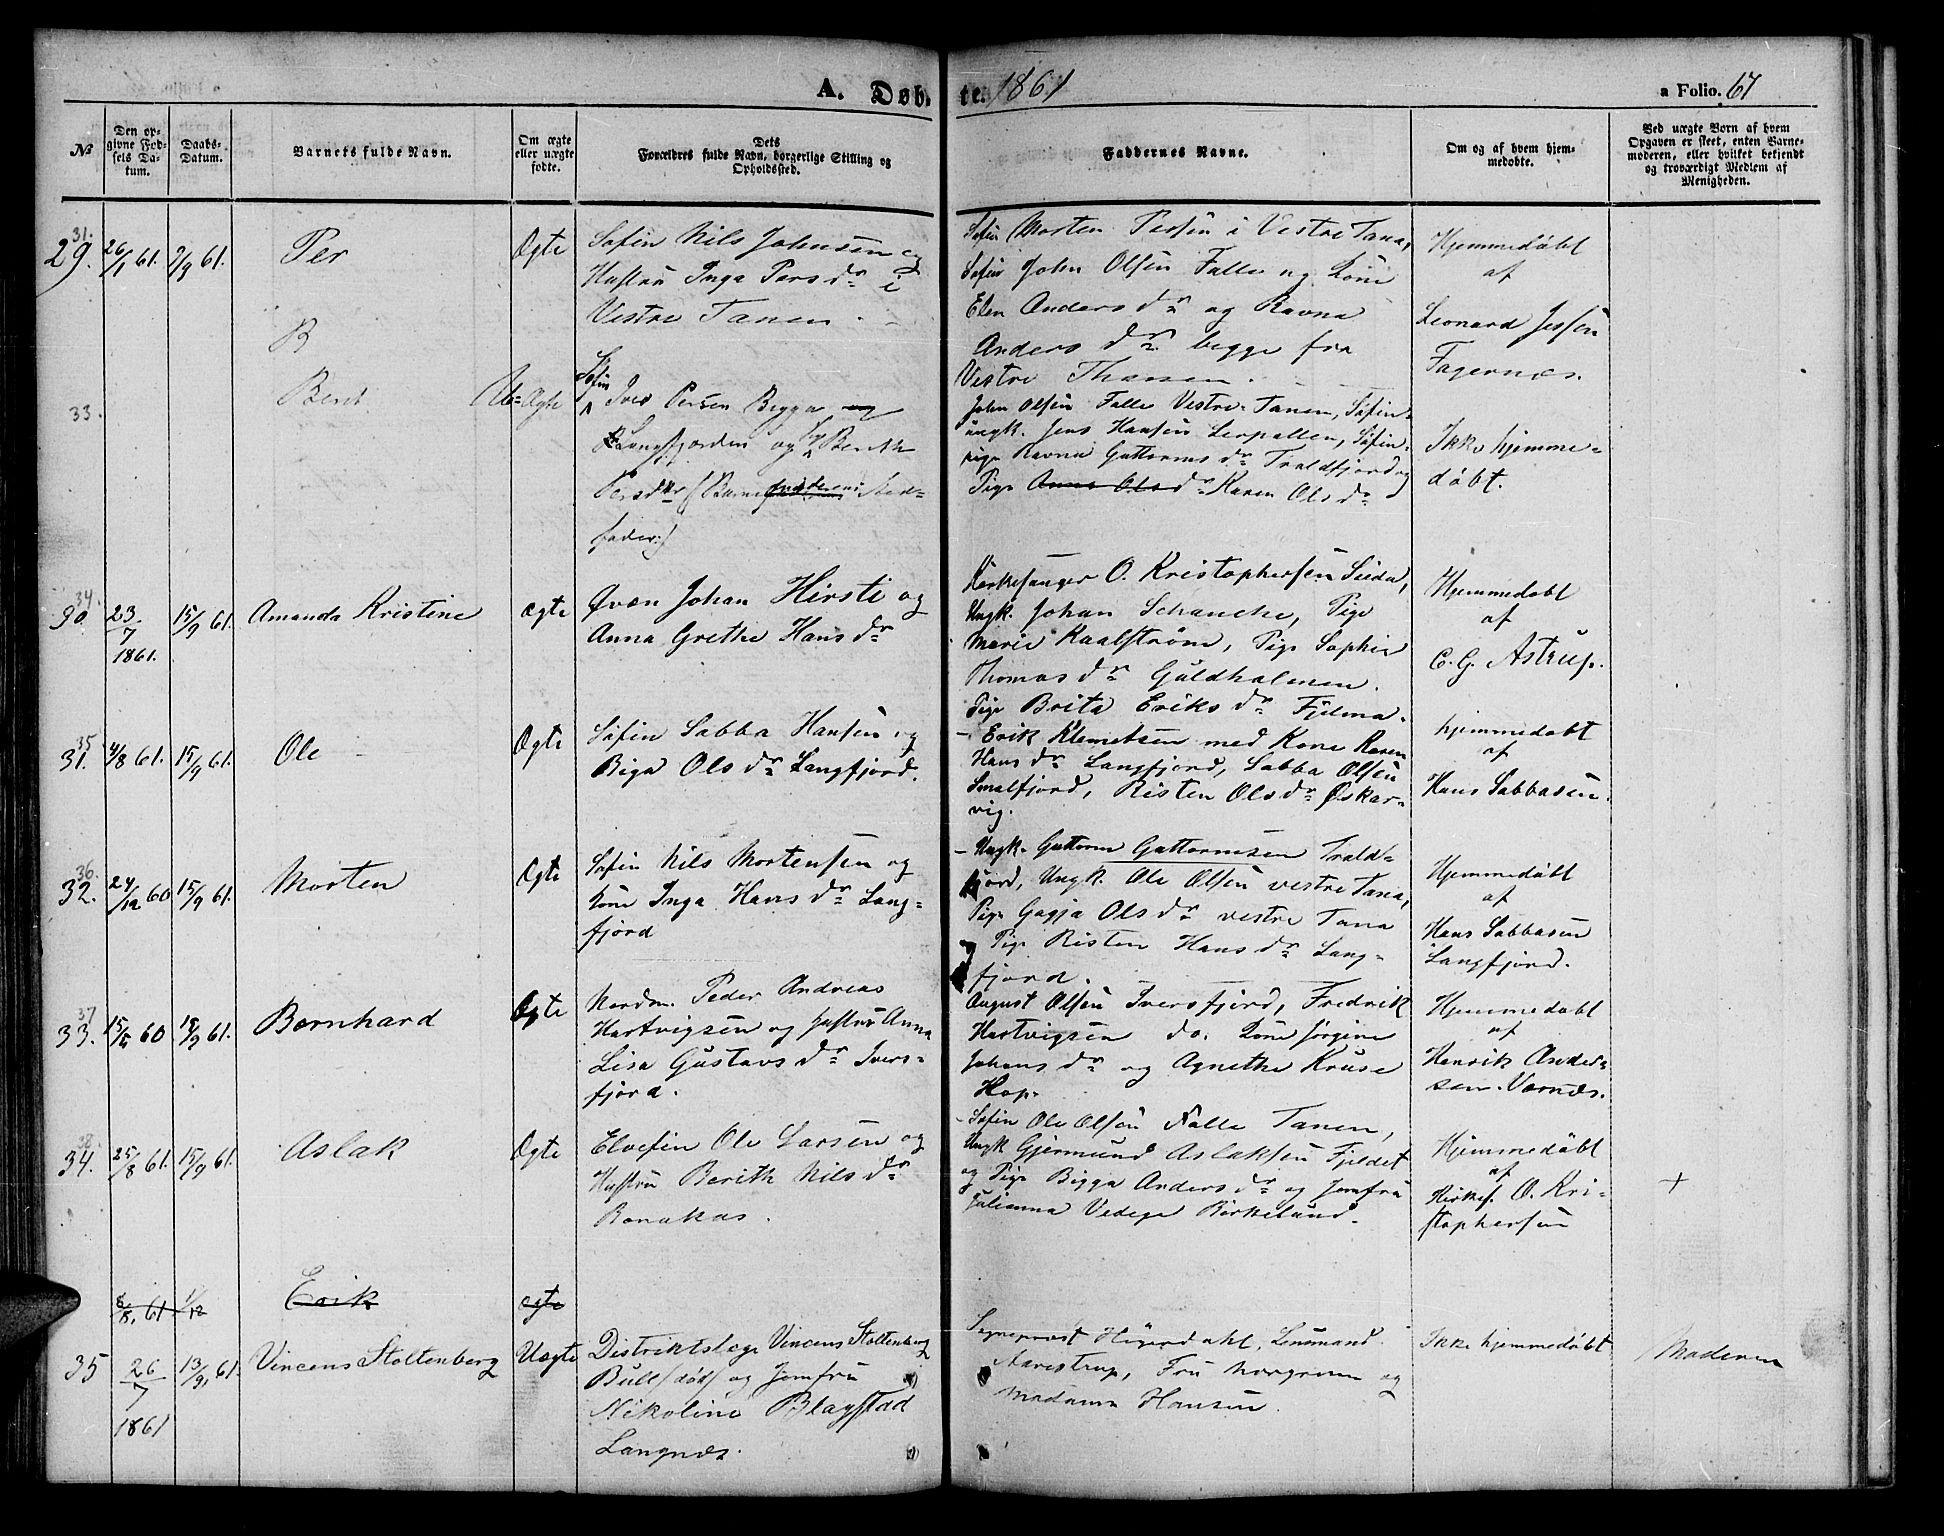 A. Døbte. 1861
a Folio. 67
№
Den opgivne Fødsels Datum.
Daabs-Datum.
Barnets fulde Navn.
Om ægte eller uægte fødte.
Dets Forældres fulde Navn, borgerlige Stilling og Opholdssted.
Faddernes Navne.
Om og af hvem hjemmedøbte.
Ved uægte Børn af hvem Opgaven er skeet, enten Barnemoderen, eller hvilket bekjendt og troværdigt Medlem af Menigheden.
31.
29. 26/1 61. 61. Per Ægte
Søfin Nils Johnsen og
Hustru Inga Persdr i
Vestre Tanen.
Søfin Morten Persen i Vestre Tana,
Søfin John Olsen Falle og Kone
Elen Andersdr og Ravna
Andersdr begge fra
Vestre Thanen.
Hjemmedøbt
af
Leonard Jessen
Fagernæs.
B
33. Berit Ægte
Søfin
Iver Persen Bigga og
Langfjorden og Berith
Persdtr (Barnefaderens Sted-
fader:)
John Olsen Falle Vestre-Tanen, Søfin-
ungk. Jens Hansen Lerpollen, Søfin-
pige Ravna Guttormsdr Traldfjord og
Pige Anna Olsdr Karen Olsdr
Ikke hjemme-
døbt.
34.
30. 23/7 1861. 15/9 61. Amanda Kristine ægte
Qvæn Johan Hirsti og
Anna Grethe Hansdr
Kirkesanger O. Kristophersen Seida,
Ungk. Johan Schanche, Pige
Marie Kaalstrøm, Pige Sophie
Thomasdr Guldholmen.
Hjemmedøbt
af
C. G. Astrup.
35
31. 4/8 61. 15/9 61. Ole Ægte
Søfin Sabba Hansen og
Biga Olsdr Langfjord.
Pige Brita Eriksdr Fjelma.
Erik Klemetsen med Kone Karen
Hansdr Langfjord, Sabba Olsen
Smalfjord, Risten Olsdr Øskar-
vig.
hjemmedøbt
af
Hans Sabbasen.
36.
32. 24/12 60 15/9 61. Morten Ægte
Søfin Nils Mortensen og
Kone Inga Hansdr Lang-
fjord
Ungk. Guttorm Guttormsen Trald-
fjord, Ungk. Ole Olsen vestre Tana,
Pige Gagja Olsdr vestre Tana
Pige Risten Hansdr Lang-
fjord.
Hjemmedøbt
af
Hans Sabbasen
Langfjord.
37
33. 60 15/9 61. Bernhard Ægte
Nordm. Peder Andreas
Hartvigsen og Hustru Anna
Lisa Gustavsdr Ivers-
fjord.
August Olsen Iversfjord, Fredrik
Hartvigsen do. Kone Jørgine
Johansdr og Agnethe Kruse
Hop.
Hjemmedøbt
af
Henrik Ander-
sen. Værnæs.
38.
34. 25/8 61. 15/9 61. Aslak Ægte
Elvefin Ole Larsen og
Hustru Berith Nilsdr
Bonakas.
Søfin Ole Olsen Falle Tanen,
Ungk Gjermund Aslaksen Fjeldet
og Pige Bigga Andersdr og Jomfru
Julianna Vedege Birkelund.
Hjemmedøbt
af
Kirkes. O. Kri-
stophersen
+
61 1/12 Erik ægte
35 26/7 1861 13/9, 61. Vincens Stoltenberg Uægte
Distriktslæge Vincens Stoltenberg
Bull (død) og Jomfru
Nikoline Blagstad
Langnæs.
Sognepræst Heyerdahl, Lensmand
Aarestrup, Fru Norgreen og
Madame Hansen.
Ikke hjemmedøbt
Moderen